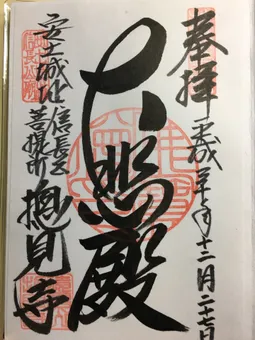 奉拝 平成年十二月二十七日
大悲殿
安土城址 信長公菩提所 摠見寺